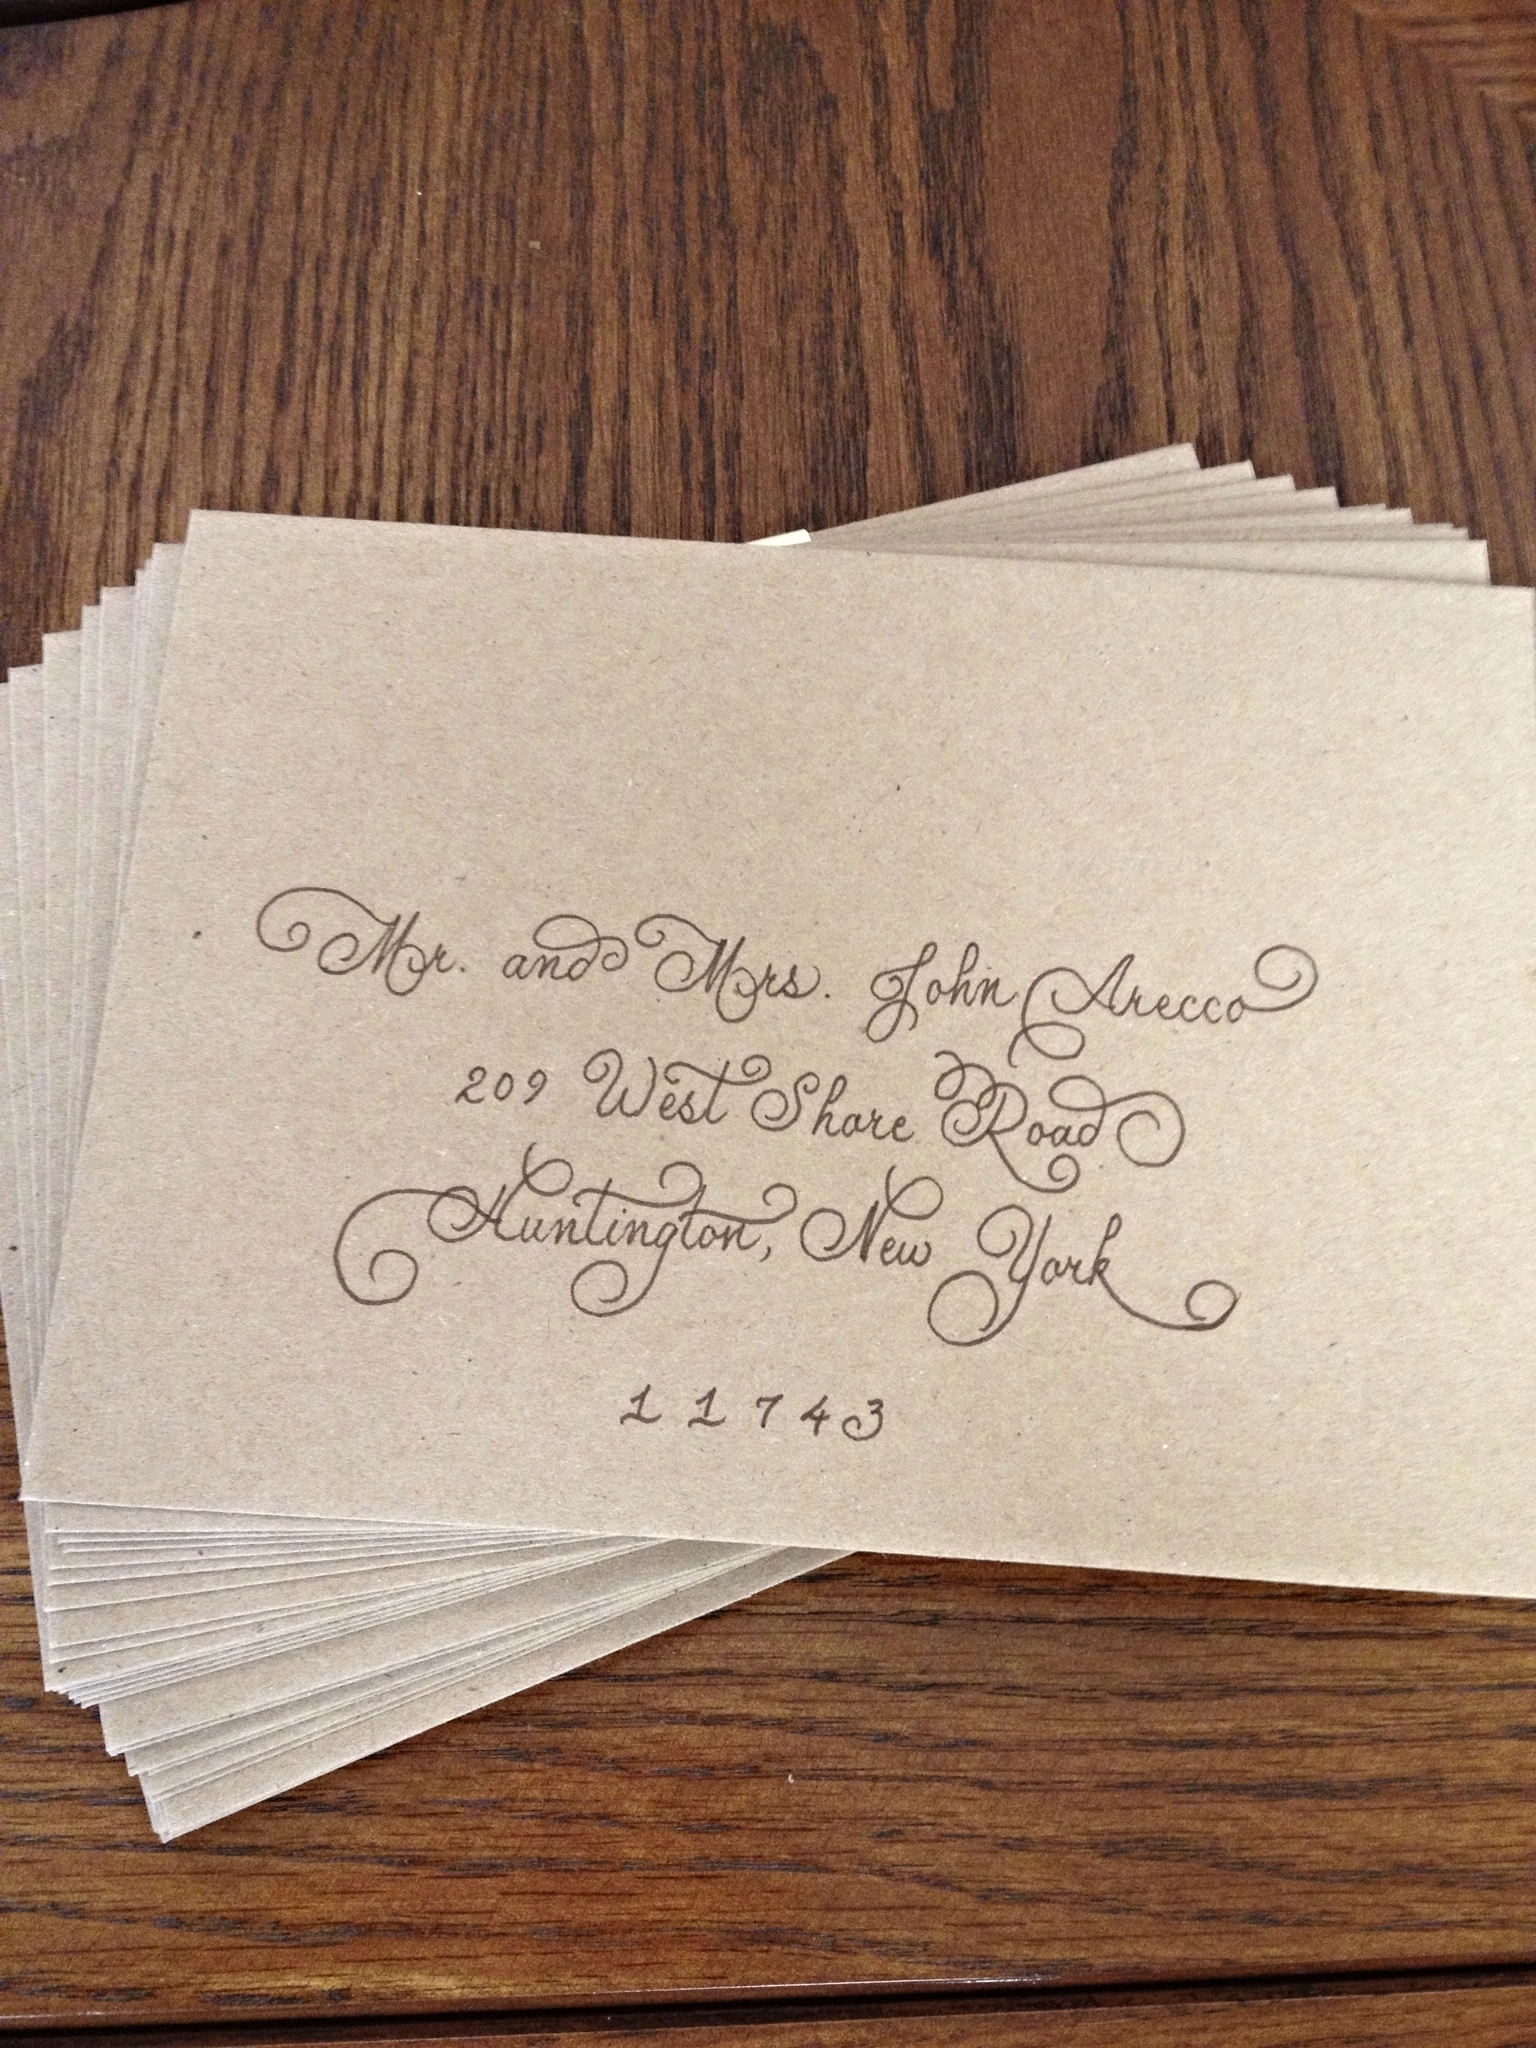 Mr. and Mrs. John Arecco
209 West Shore Road
Huntington, New York
11743